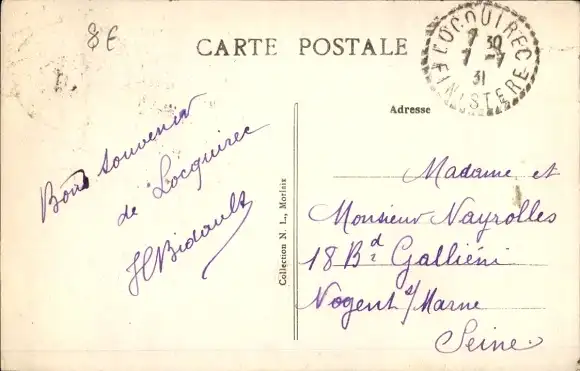 8 €
CARTE POSTALE
LOCQUIREC
7 30
7 - 7
31
FINISTERE
Adresse
Bons souvenir
de Locquirec
HBidault
Collection N. L., Morlaix
Madame et
Monsieur Nayrolles
18 Bd Galliéni
Nogent s/Marne
Seine.